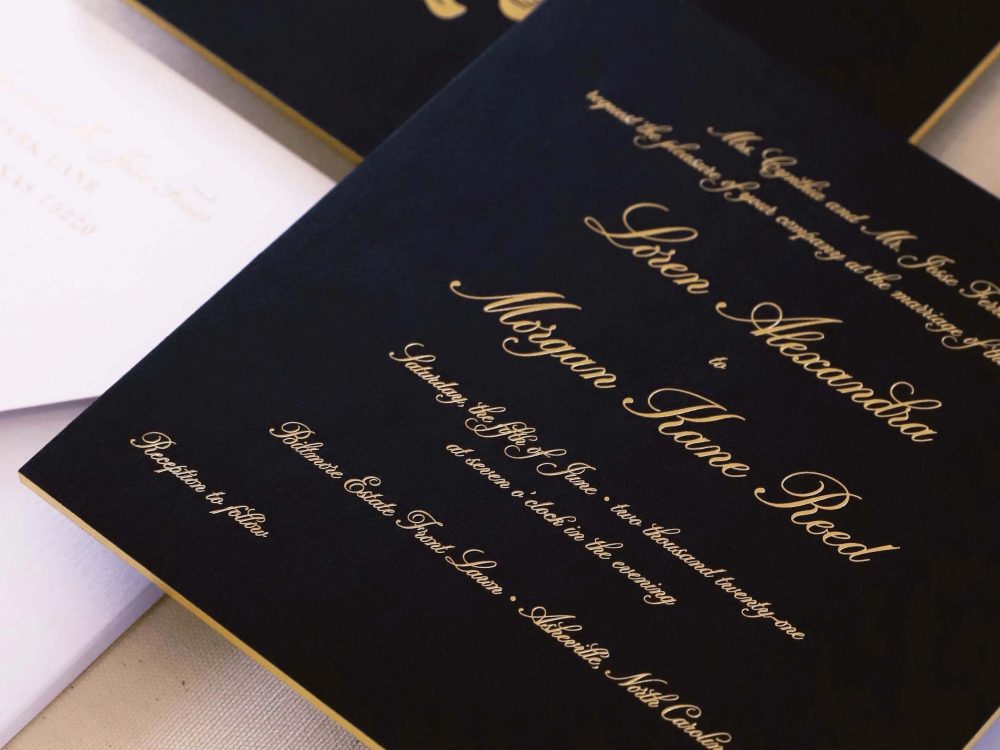 Mrs. Cynthia and Mr. Jesse
request the pleasure of your company at the marriage of
Loren Alexandra
to
Morgan Kane Reed
Saturday, the fifth of June • two thousand twenty-one
at seven o'clock in the evening
Biltmore Estate Front Lawn • Asheville, North Carolina
Reception to follow
LANE
75220